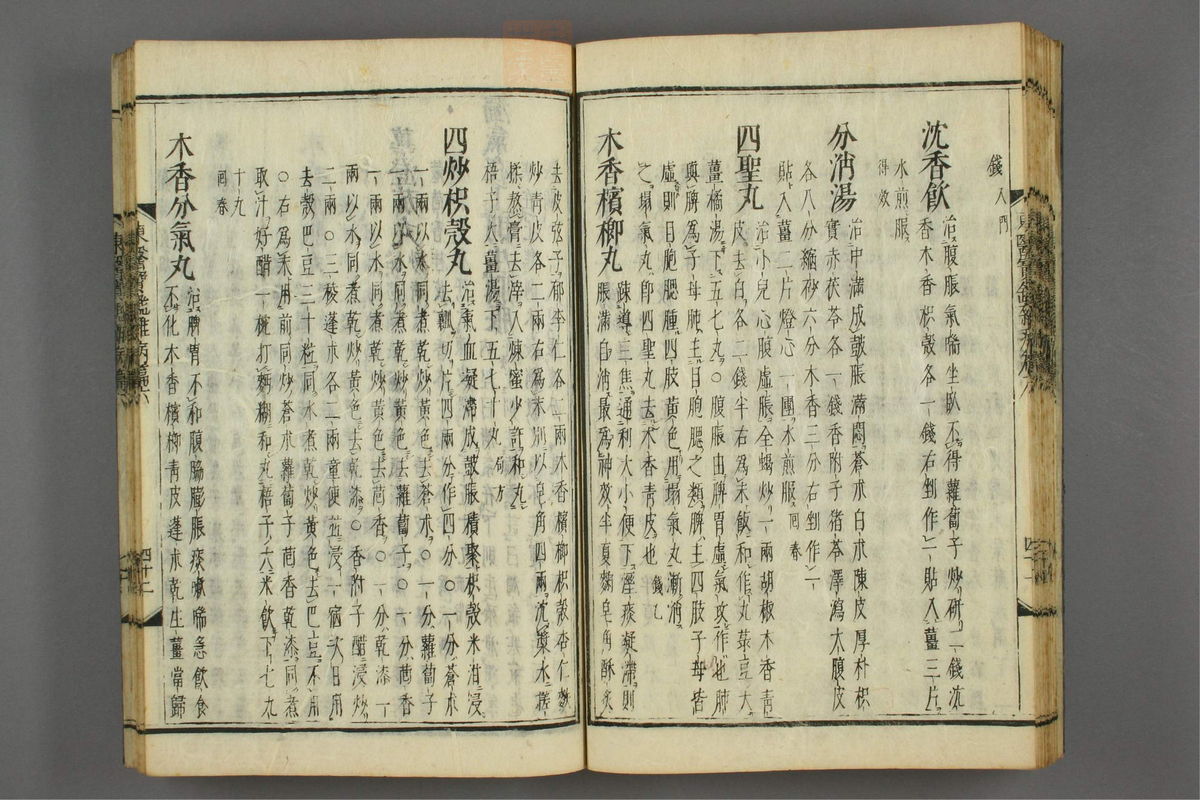 錢入門
沈香飮 治腹脹氣喘坐臥不得蘿蔔子炒硏二錢沈
香木香枳殼各一錢右剉作一貼入薑三片
水煎服
得效
分消湯 治中滿成鼓脹滿悶蒼朮白朮陳皮厚朴枳
實赤茯苓各一錢香附子猪苓澤瀉大腹皮
各八分縮砂六分木香三分右剉作一
貼入薑二片燈心一團水煎服回春
四聖丸 治小兒心腹虛脹全蝎炒一兩胡椒木香靑
皮去白各二錢半右爲末飯和作丸菉豆大
薑橘湯下五七丸○腹脹由脾胃虛氣攻作也肺
與脾爲子母肺主目胞腮之類脾主四肢子母皆
虛則目胞腮腫四肢黃色用塌氣丸漸消
之塌氣丸卽四聖丸去木香靑皮也錢乙
木香檳榔丸 踈導三焦通利大小便下痰凝滯則
脹滿自消最爲神效半夏麴皂角酥炙
去皮弦子郁李仁各二兩木香檳榔枳殼杏仁麩
炒靑皮各二兩右爲末別以皂角四兩漿水
揉熬膏去滓入煉蜜少許和丸
梧子大薑湯下五七十丸局方
四炒枳殼丸 治氣血凝滯成鼓脹積聚枳殼米泔浸
去瓤切片四兩分作四分○一分蒼朮
一兩以水同煮乾炒黃色去蒼朮○一分蘿蔔子
一兩以水同煮乾炒黃色去蘿蔔子○一分茴香
一兩以水同煮乾炒黃色去茴香○一分乾漆一
兩以水同煮乾炒黃色去乾漆○香附子醋浸炒
二兩○三稜蓬朮各二兩童便並浸一宿次日用
去殼巴豆三十粒同水煮乾炒黃色去巴豆不用
○右爲末用前同炒蒼朮蘿蔔子茴香乾漆同煮
取汁好醋一椀打糆糊和丸梧子大米飮下七丸
十丸
回春
木香分氣丸 治脾胃不和腹脇膨脹痰嗽喘急飮食
不化木香檳榔靑皮蓬朮乾生薑當歸